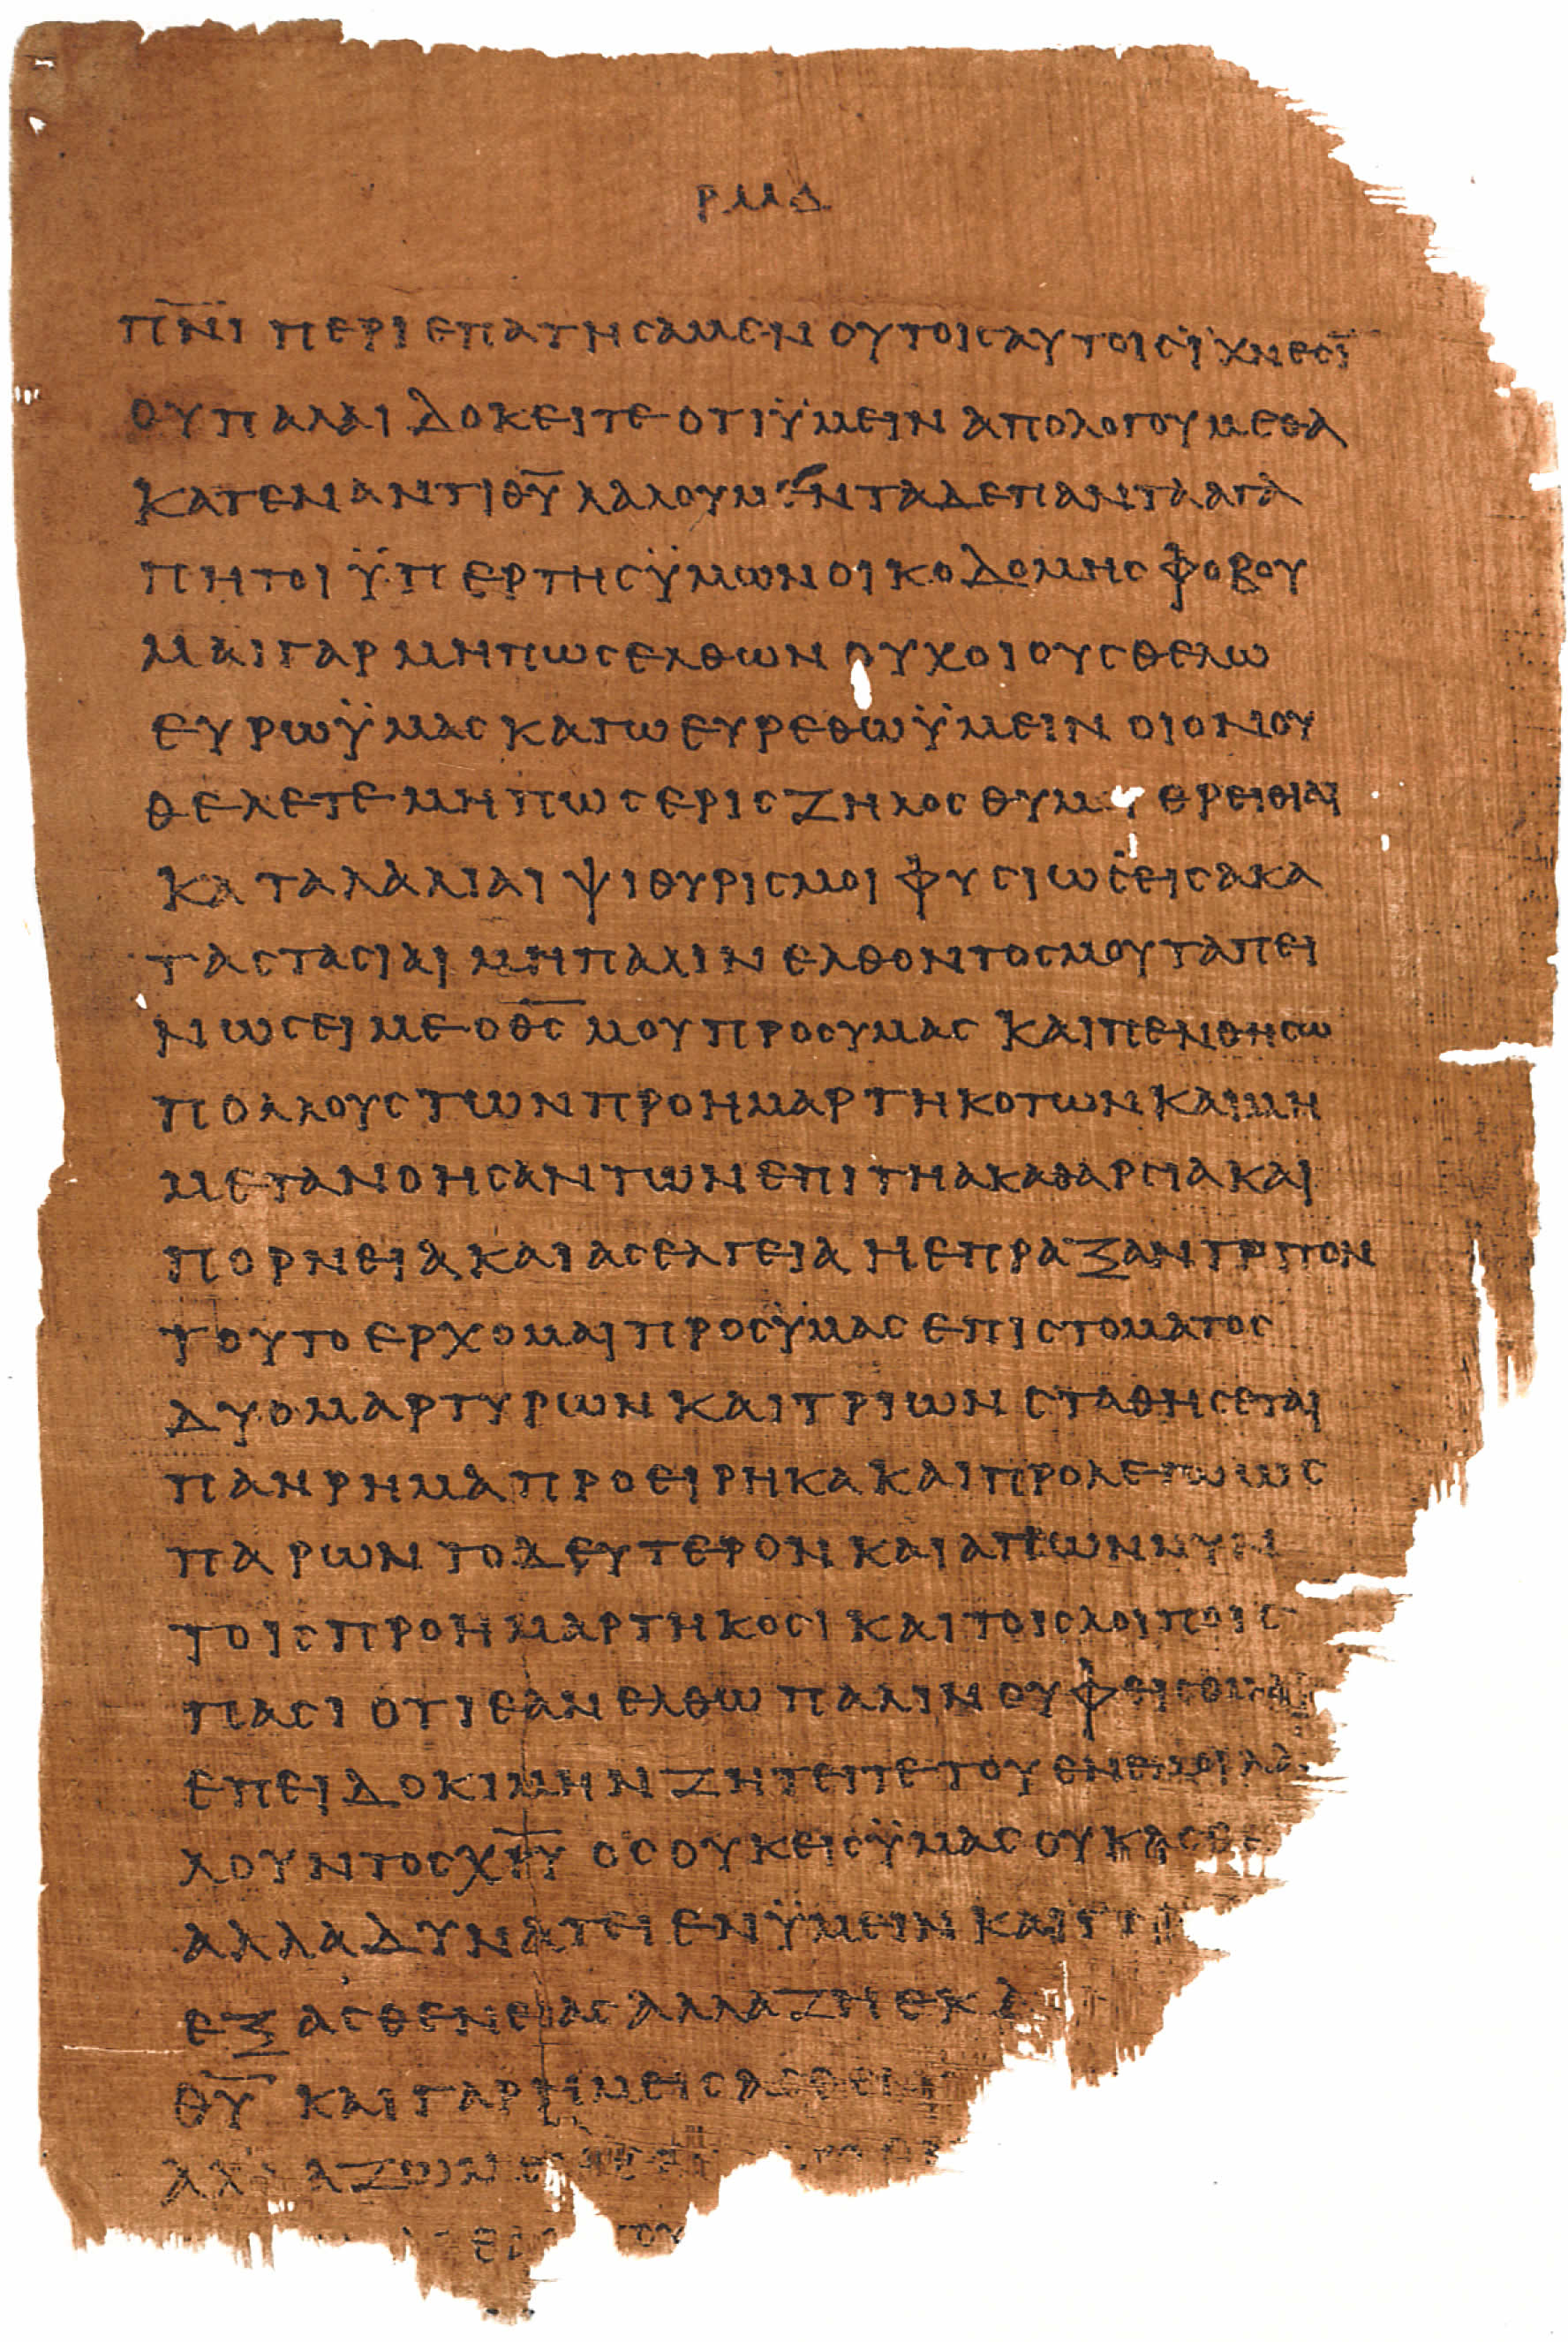 ΡΜΔ
Π̅Ν̅Ι ΠΕΡΙΕΠΑΤΗСΑΜΕΝ ΟΥΤΟΙСΑΥΤΟΙСΪΧΝΕСΙ
ΟΥΠΑΛΑΙ ΔΟΚΕΙΤΕ ΟΤΙΫΜΕΙΝ ΑΠΟΛΟΓΟΥΜΕΘΑ
ΚΑΤΕΝΑΝΤΙΘ̅Υ̅ ΛΑΛΟΥΜΕΝ ΤΑΔΕΠΑΝΤΑΑΓΑ
ΠΗΤΟΙ ΫΠΕΡΤΗСΫΜΩΝΟΙΚΟΔΟΜΗС ΦΟΒΟΥ
ΜΑΙΓΑΡ ΜΗΠΩСΕΛΘΩΝ ΟΥΧΟΙΟΥСΘΕΛΩ
ΕΥΡΩΫΜΑСΚΑΓΩΕΥΡΕΘΩΫΜΕΙΝ ΟΙΟΝΟΥ
ΘΕΛΕΤΕΜΗΠΩСΕΡΙСΖΗΛΟСΘΥΜΟΙ ΕΡΕΙΘΙΑΙ
ΚΑΤΑΛΑΛΙΑΙ ΨΙΘΥΡΙСΜΟΙ ΦΥСΙΩСΕΙСΑΚΑ
ΤΑСΤΑСΙΑΙ ΜΗΠΑΛΙΝ ΕΛΘΟΝΤΟСΜΟΥΤΑΠΕΙ
ΝΩСΕΙ ΜΕ Ο Θ̅С̅ ΜΟΥΠΡΟСΥΜΑС ΚΑΙΠΕΝΘΗСΩ
ΠΟΛΛΟΥСΤΩΝΠΡΟΗΜΑΡΤΗΚΟΤΩΝΚΑΙΜΗ
ΜΕΤΑΝΟΗСΑΝΤΩΝΕΠΙΤΗΑΚΑΘΑΡСΙΑΚΑΙ
ΠΟΡΝΕΙΑΚΑΙΑСΕΛΓΕΙΑ ΗΕΠΡΑΞΑΝΤΡΙΤΟΝ
ΤΟΥΤΟΕΡΧΟΜΑΙΠΡΟСΫΜΑС ΕΠΙСΤΟΜΑΤΟС
ΔΥΟΜΑΡΤΥΡΩΝΚΑΙΤΡΙΩΝСΤΑΘΗСΕΤΑΙ
ΠΑΝΡΗΜΑΠΡΟΕΙΡΗΚΑΚΑΙΠΡΟΛΕΓΩΩС
ΠΑΡΩΝΤΟΔΕΥΤΕΡΟΝΚΑΙΑΠΩΝΝΥΝ
ΤΟΙСΠΡΟΗΜΑΡΤΗΚΟСΙΚΑΙΤΟΙСΛΟΙΠΟΙС
ΠΑСΙ ΟΤΙΕΑΝΕΛΘΩ ΠΑΛΙΝΟΥΦΕΙСΟΜΑΙ
ΕΠΕΙΔΟΚΙΜΗΝΖΗΤΕΙΤΕΤΟΥΕΝΕΜΟΙΛΑ
ΛΟΥΝΤΟСΧ̅Ρ̅Υ̅ ΟСΟΥΚΕΙСΫΜΑСΟΥΚΑСΘΕ
ΑΛΛΑΔΥΝΑΤΕΙΕΝΫΜΕΙΝ ΚΑΙΓ
ΕΞΑСΘΕΝΕΙΑСΑΛΛΑΖΗΕΚ
Θ̅Υ̅ ΚΑΙΓΑΡΗΜΕΙСΑСΘΕΝ
ΑΛΛΑΖΩΜΕΝ